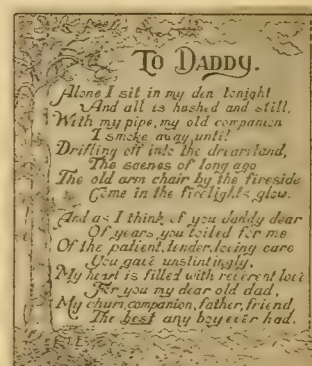 TO DADDY.
Alone I sit in my den tonight
And all is hushed and still,
With my pipe, my old companion
I smoke away, until
Drifting off into the dreamland,
The scenes of long ago
The old arm chair by the fireside
Come in the firelights glow.
And as I think of you daddy dear
Of years you toiled for me
Of the patient, tender, loving care
You gave unstintingly.
My heart is filled with reverent love
For you my dear old dad,
My chum, companion, father, friend,
The best any boy ever had.